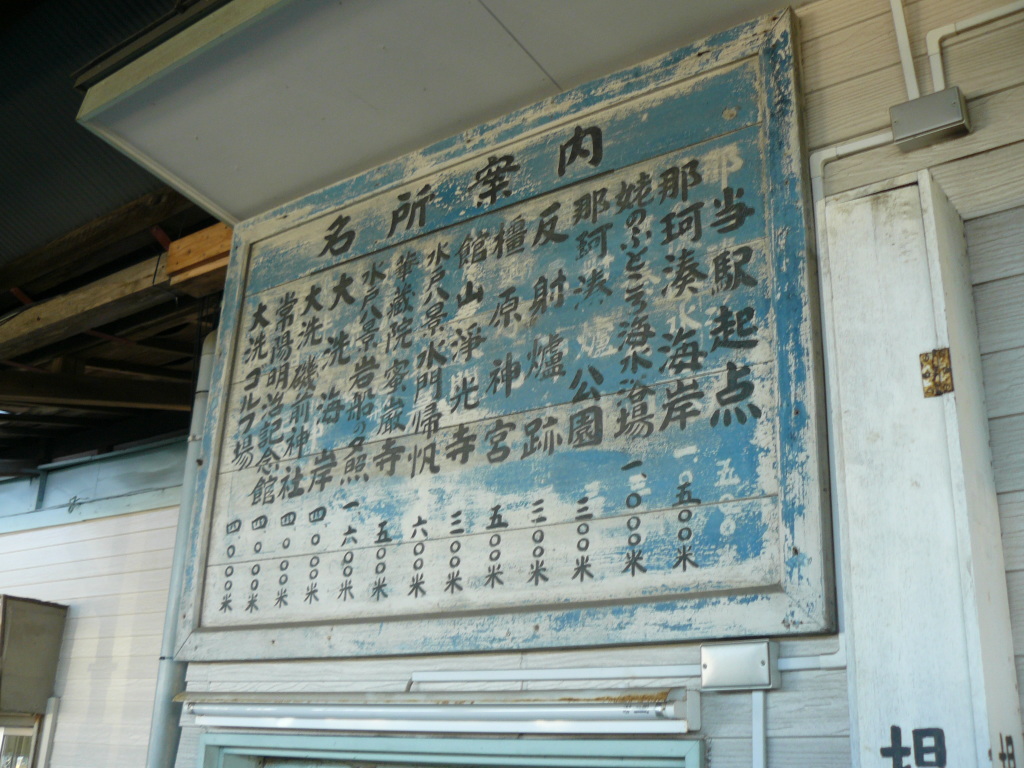 名所案内
当駅起点
那珂湊海岸 一五〇〇米
姥のふところ海水浴場 一〇〇〇米
那珂湊公園 三〇〇米
反射爐跡 三〇〇米
橿原神宮 五〇〇米
館山淨光寺 三〇〇米
水戸八景水門帰帆 六〇〇米
華蔵院蜜巌寺 五〇〇米
水戸八景岩船の夕照 一六〇〇米
大洗海岸 四〇〇〇米
大洗磯前神社 四〇〇〇米
常陽明治記念館 四〇〇〇米
大洗ゴルフ場 四〇〇〇米